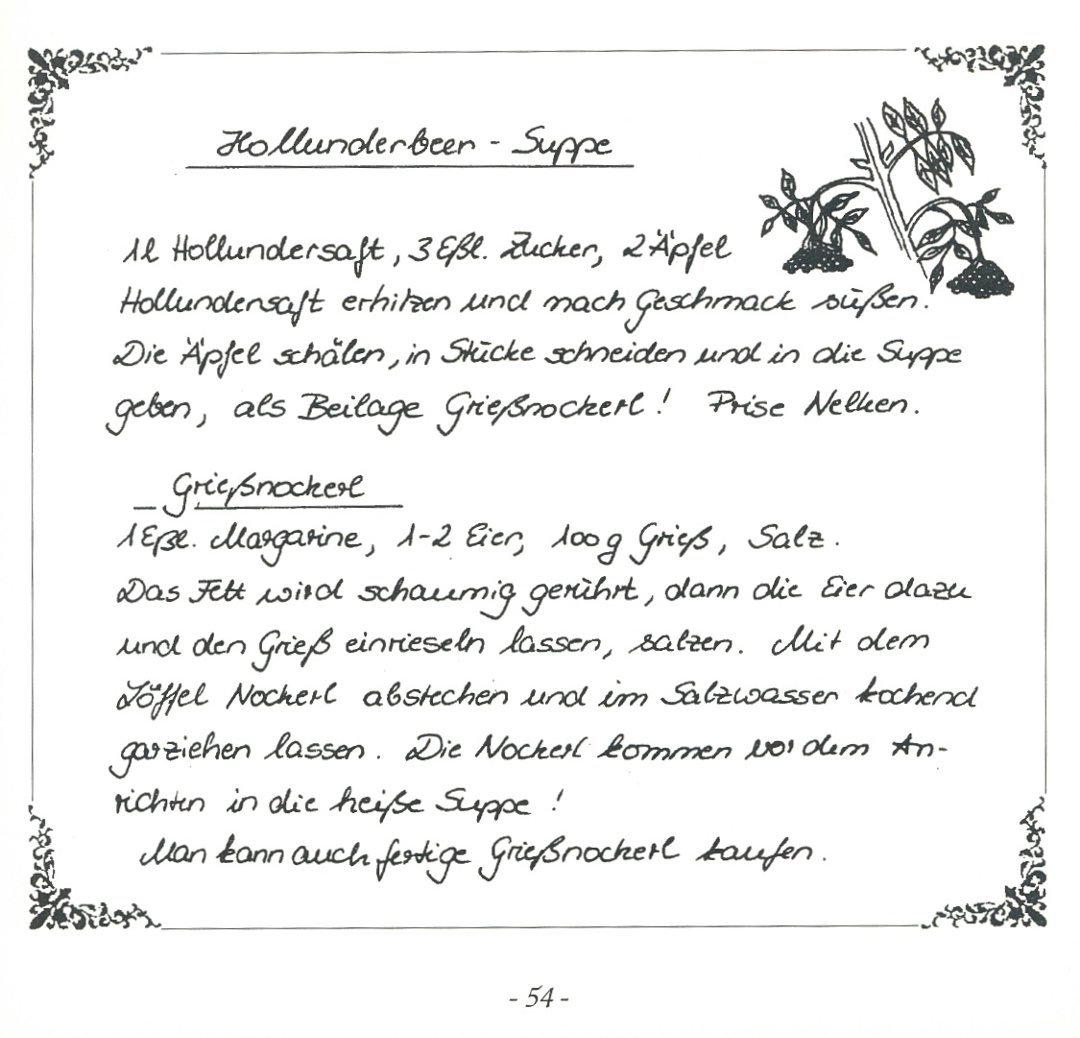 Hollunderbeer - Suppe
1l Hollundersaft, 3 Eßl. Zucker, 2 Äpfel
Hollundersaft erhitzen und nach Geschmack süßen.
Die Äpfel schälen, in Stücke schneiden und in die Suppe
geben, als Beilage Grießnockerl! Prise Nelken.
Grießnockerl
1 Eßl. Margarine, 1-2 Eier, 100g Grieß, Salz.
Das Fett wird schaumig gerührt, dann die Eier dazu
und den Grieß einrieseln lassen, salzen. Mit dem
Löffel Nockerl abstechen und im Salzwasser kochend
garziehen lassen. Die Nockerl kommen vor dem An-
richten in die heiße Suppe!
Man kann auch fertige Grießnockerl kaufen.
- 54 -